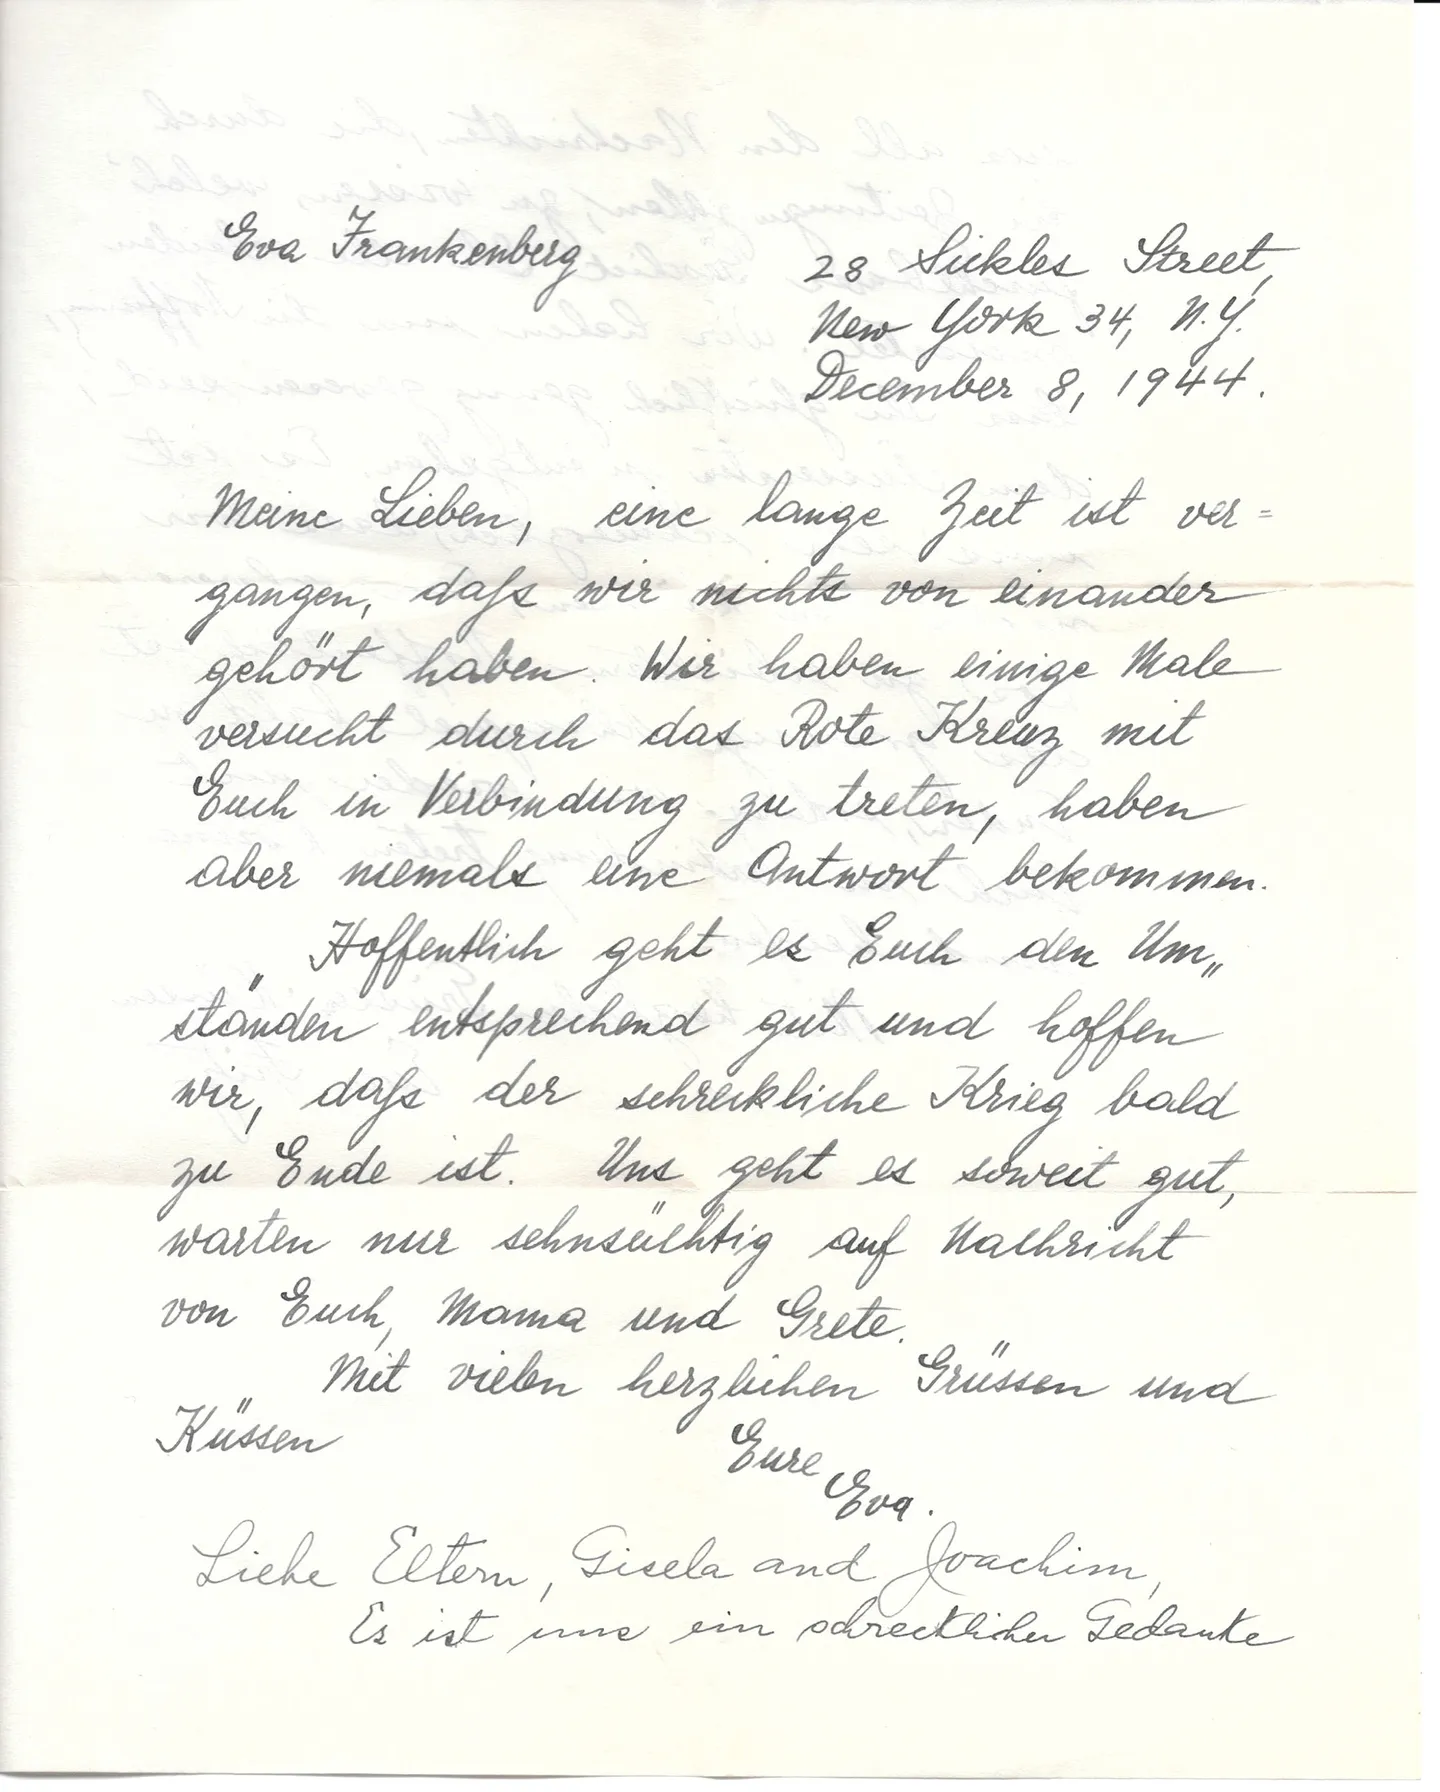 Eva Frankenberg
28 Sickles Street,
New York 34, N.Y.
December 8, 1944.
Meine Lieben, eine lange Zeit ist ver=
gangen, daß wir nichts von einander
gehört haben. Wir haben einige Male
versucht durch das Rote Kreuz mit
Euch in Verbindung zu treten, haben
aber niemals eine Antwort bekommen.
Hoffentlich geht es Euch den Um„
ständen entsprechend gut und hoffen
wir, daß der schreckliche Krieg bald
zu Ende ist. Uns geht es soweit gut,
warten nur sehnsüchtig auf Nachricht
von Euch, Mama und Grete.
Mit vielen herzlichen Grüssen und
Küssen
Eure
Eva.
Liebe Eltern, Gisela and Joachim,
Es ist uns ein schrecklicher Gedanke